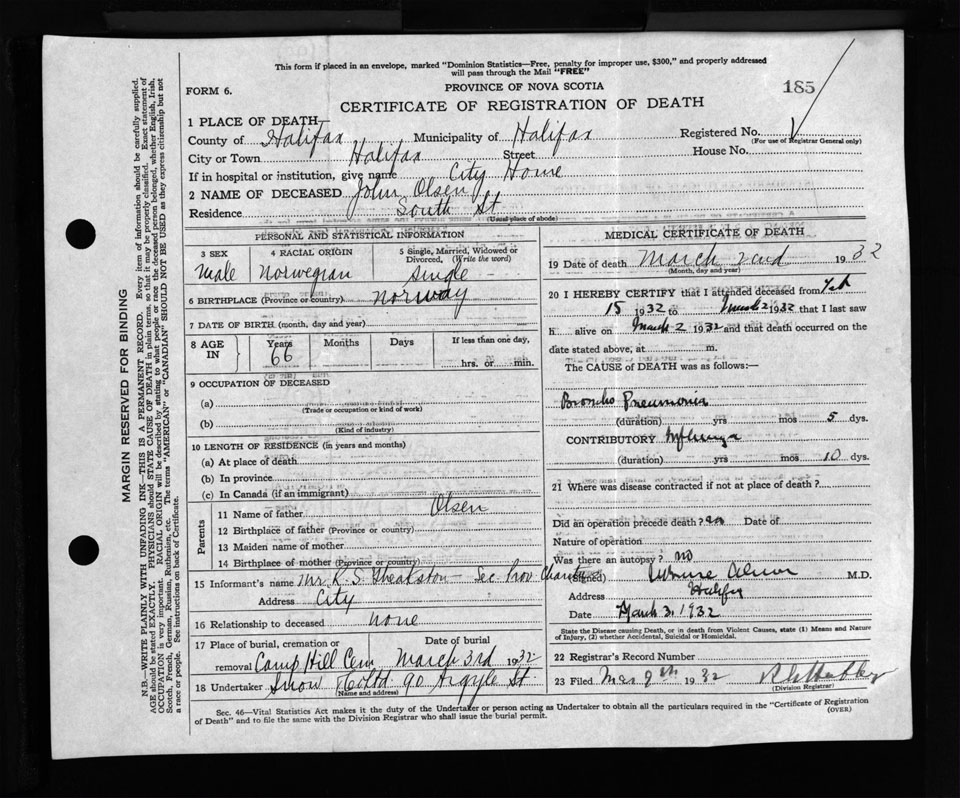 This form if placed in an envelope, marked "Dominion Statistics—Free, penalty for improper use, $300," and properly addressed
will pass through the Mail "FREE"
185
FORM 6.
PROVINCE OF NOVA SCOTIA
CERTIFICATE OF REGISTRATION OF DEATH
1 PLACE OF DEATH
County of Halifax Municipality of Halifax Registered No.
(For use of Registrar General only)
City or Town Halifax Street House No.
If in hospital or institution, give name City Home
2 NAME OF DECEASED John Olsen
Residence South St
(Usual place of abode)
MARGIN RESERVED FOR BINDING
N.B.—WRITE PLAINLY WITH UNFADING INK—THIS IS A PERMANENT RECORD. Every item of information should be carefully supplied.
AGE should be stated EXACTLY. PHYSICIANS should STATE CAUSE OF DEATH in plain terms, so that it may be properly classified. Exact statement of
OCCUPATION is very important. RACIAL ORIGIN will be described by stating to what people or race the deceased person belonged, whether English, Irish,
Scotch, French, German, Russian, Ruthenian, etc. The terms "AMERICAN" or "CANADIAN" SHOULD NOT BE USED as they express citizenship but not
a race or people. See instructions on back of Certificate.
PERSONAL AND STATISTICAL INFORMATION
3 SEX 4 RACIAL ORIGIN 5 Single, Married, Widowed or
Divorced, (Write the word)
Male Norwegian single
6 BIRTHPLACE (Province or country) Norway
7 DATE OF BIRTH (month, day and year)
8 AGE IN Years Months Days If less than one day,
66 hrs. or min.
9 OCCUPATION OF DECEASED
(a)
(Trade or occupation or kind of work)
(b)
(Kind of industry)
10 LENGTH OF RESIDENCE (in years and months)
(a) At place of death
(b) In province
(c) In Canada (if an immigrant)
Parents
11 Name of father Olsen
12 Birthplace of father (Province or country)
13 Maiden name of mother
14 Birthplace of mother (Province or country)
15 Informant's name Mr R. S. Theakston — Sec Prov Charity
Address City
16 Relationship to deceased none
17 Place of burial, cremation or Date of burial
removal Camp Hill Cem March 3rd 1932
18 Undertaker Snow & Co Ltd 90 Argyle St
(Name and address)
MEDICAL CERTIFICATE OF DEATH
19 Date of death March 2nd 1932
(Month, day and year)
20 I HEREBY CERTIFY that I attended deceased from Feb
15 1932 to March 2 1932 that I last saw
h alive on March 2 1932 and that death occurred on the
date stated above, at m.
The CAUSE of DEATH was as follows:—
Broncho Pneumonia
(duration) yrs mos 5 dys.
CONTRIBUTORY Influenza
(duration) yrs mos 10 dys.
21 Where was disease contracted if not at place of death?
Did an operation precede death? no Date of
Nature of operation
Was there an autopsy? no
(Signed) M.D.
Address Halifax
Date March 3, 1932
State the Disease causing Death, or in death from Violent Causes, state (1) Means and Nature
of Injury, (2) whether Accidental, Suicidal or Homicidal.
22 Registrar's Record Number
23 Filed Mar 9th 1932
(Division Registrar)
Sec. 46—Vital Statistics Act makes it the duty of the Undertaker or person acting as Undertaker to obtain all the particulars required in the "Certificate of Registration
of Death" and to file the same with the Division Registrar who shall issue the burial permit.
(OVER)